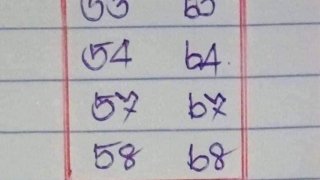 53 63
54 64.
57 67
58 68